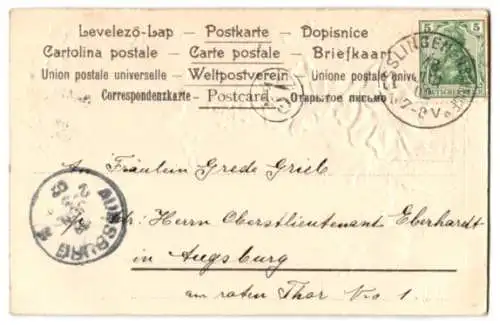 Levelező-Lap — Postkarte — Dopisnice
Cartolina postale — Carte postale — Briefkaart
Union postale universelle — Weltpostverein — Unione postale unive
Correspondenzkarte — Postcard — Открытое письмо
5 5
SLINGEN
7-8V.
An Fräulein Grede Grieb
Adr: Herrn Oberstlieutenant Eberhardt
in Augsburg
am roten Thor No 1.
AUGSBURG